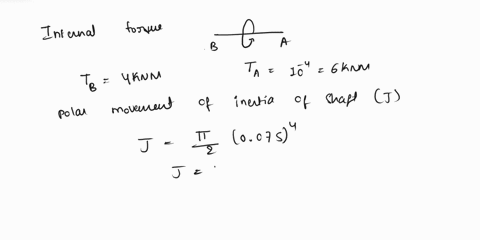 Internal torque
B A
T_B = 4KNM T_A = 10-4 = 6KNM
polar movement of inertia of shaft (J)
J = π/2 (0.075)^4
J =